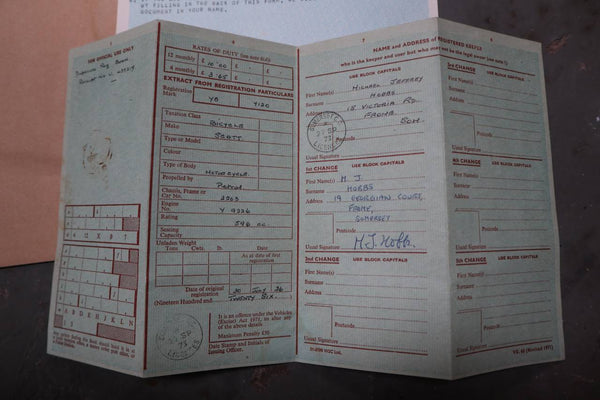 BY FILLING IN THE BACK OF THIS FORM,
DOCUMENT IN YOUR NAME.
FOR OFFICIAL USE ONLY
6
RATES OF DUTY (see note 8(d))
12 monthly £ 10 00 £ £
4 monthly £ 3 65 £ £
EXTRACT FROM REGISTRATION PARTICULARS
Registration Mark YB 9120
Taxation Class BICYCLE
Make SCOTT
Type or Model
Type of Body MOTORCYCLE
Propelled by PETROL
Chassis, Frame or Car No.
Engine No. Y 9336
Rating 596 cc.
Seating Capacity
Unladen Weight
Tons. Cwts. lb.
As at date of first registration
Date of original registration
(Nineteen Hundred and TWENTY SIX
It is an offence under the Vehicles (Excise) Act 1971, to alter any of the above details
Maximum Penalty £50
Date Stamp and Initials of Issuing Officer.
7
NAME and ADDRESS of REGISTERED KEEPER
who is the keeper and user but who may not be the legal owner (see note 1)
USE BLOCK CAPITALS
First Name(s) MICHAEL JEFFREY
Surname HOBBS
Address 15 VICTORIA RD.
FROME
SOM.
Postcode
Usual Signature
1st CHANGE USE BLOCK CAPITALS
First Name(s) M. J.
Surname HOBBS
Address 19 GEORGIAN COURT,
FROME,
SOMERSET
Postcode
Usual Signature M.J. Hobbs
2nd CHANGE USE BLOCK CAPITALS
First Name(s)
Surname
Address
Postcode
Usual Signature
3rd CHANGE USE BLOCK CAPITALS
First Name(s)
Surname
Address
Postcode
Usual Signature
4th CHANGE USE BLOCK CAPITALS
First Name(s)
Surname
Address
Postcode
Usual Signature
5th CHANGE USE BLOCK CAPITALS
First Name(s)
Surname
Address
Postcode
Usual Signature